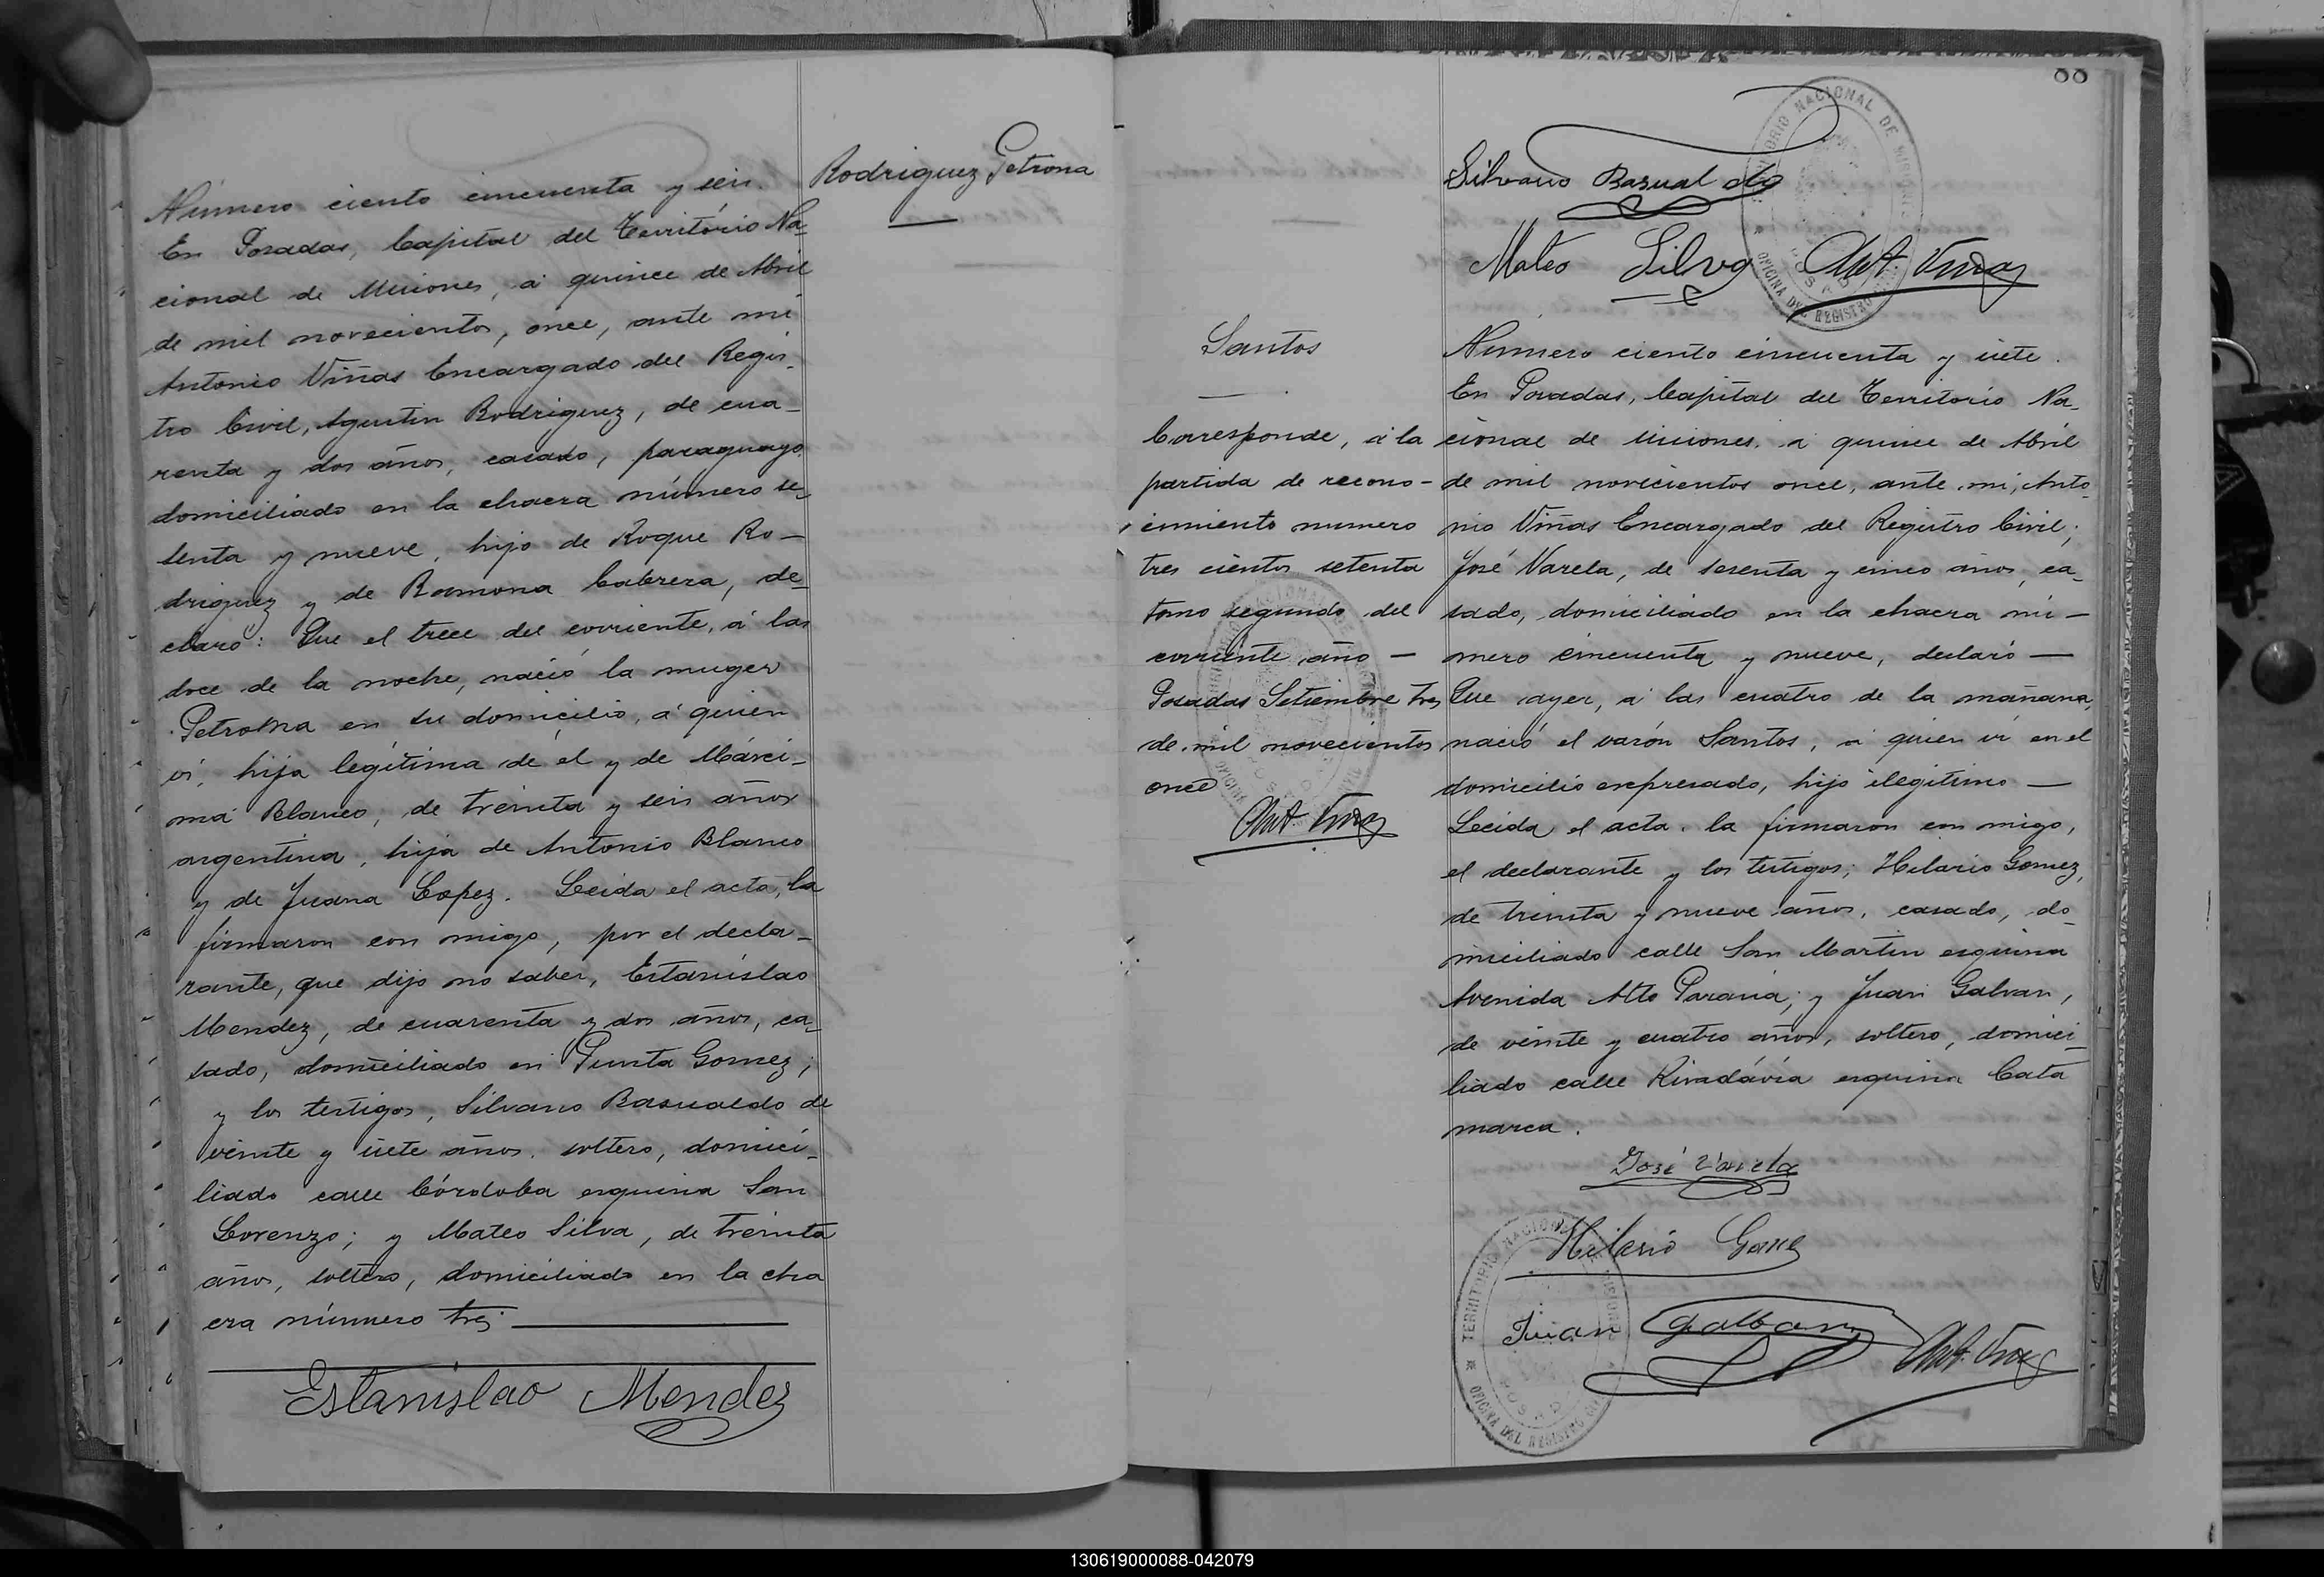 Rodriguez Petrona
Número ciento cincuenta y seis.
En Posadas, Capital del Território Na-
cional de Misiones, á quince de Abril
de mil novecientos, once, ante mi
Antonio Viñas Encargado del Regis-
tro Civil, Agustin Rodriguez, de cua-
renta y dos años, casado, paraguayo
domiciliado en la chacra número se-
senta y nueve, hijo de Roque Ro-
driguez y de Ramona Cabrera, de-
claró: Que el trece del corriente, á las
doce de la noche, nació la muger
Petrona en su domicilio, á quien
ví, hija legítima de él y de Márci-
ma Blanco, de treinta y seis años
argentina, hija de Antonio Blanco
y de Juana Lopez. Leida el acta, la
firmaron con migo, por el decla-
rante, que dijo no saber, Estanislao
Mendez, de cuarenta y dos años, ca-
sado, domiciliado en Punta Gomez;
y los testigos, Silvano Basualdo de
veinte y siete años, soltero, domici-
liado calle Córdoba esquina San
Lorenzo; y Mateo Silva, de treinta
años, soltero, domiciliado en la cha
cra número tres
Estanislao Mendez
88
Silvano Basualdo
Mateo Silva Ant. Viñas
TERRITORIO NACIONAL DE MISIONES
OFICINA DEL REGISTRO
POSADAS
Santos
Corresponde, á la
partida de recono-
cimiento numero
tres cientos setenta
tomo segundo del
corriente año —
Posadas Setiembre tres
de mil novecientos
once
Ant. Viñas
Número ciento cincuenta y siete.
En Posadas, Capital del Territorio Na-
cional de Misiones, á quince de Abril
de mil novicientos once, ante mi, Anto-
nio Viñas Encargado del Registro Civil;
José Varela, de sesenta y cinco años, ca-
sado, domiciliado en la chacra nú-
mero cincuenta y nueve, declaró —
Que ayer, á las cuatro de la mañana,
nació el varón Santos, á quien ví en el
domicilio expresado, hijo ilegítimo —
Leida el acta, la firmaron con migo,
el declarante y los testigos; Hilario Gomez,
de treinta y nueve años, casado, do-
miciliado calle San Martin esquina
Avenida Alto Paraná; y Juan Galvan,
de veinte y cuatro años, soltero, domici-
liado calle Rivadávia esquina Cata
marca.
José Varela
Hilario Gomez
Juan Galban Ant. Viñas
TERRITORIO NACIONAL DE MISIONES
OFICINA DEL REGISTRO CIVIL
POSADAS
130619000088-042079